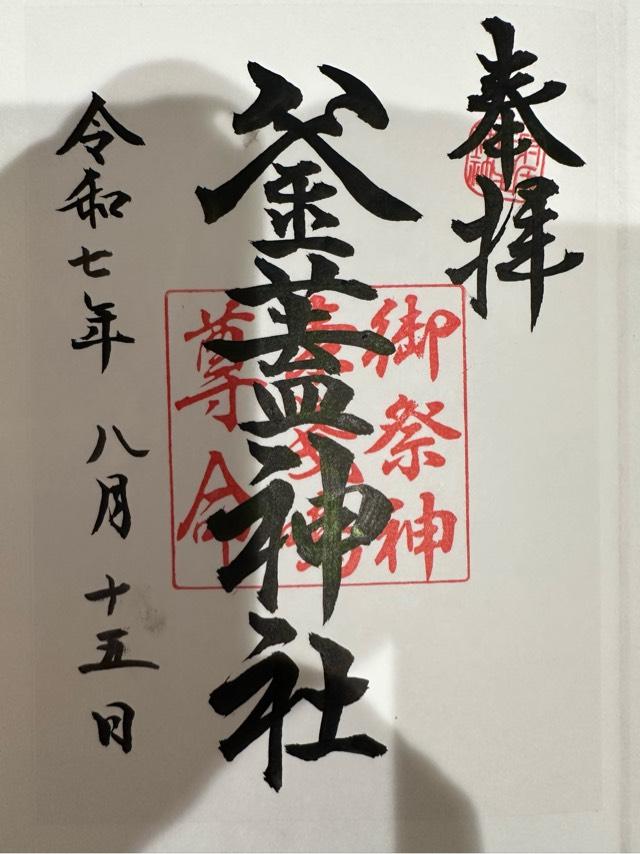 奉拝
釜蓋神社
御祭神
尊命
令和七年 八月 十五日